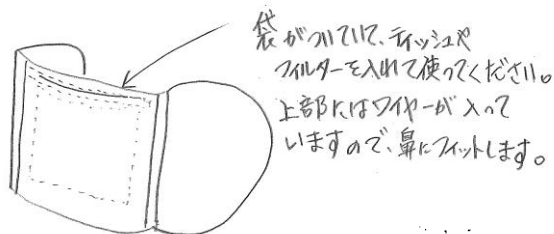 袋がついていて、ティッシュや
フィルターを入れて使ってください。
上部にはワイヤーが入って
いますので、鼻にフィットします。